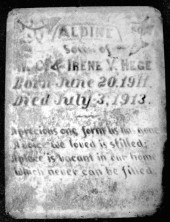 ALDINE
Son of
W. C. & IRENE V. HEGE
Born June 20, 1911.
Died July 3, 1913.
A precious one form us has gone
A voice we loved is stilled;
A place is vacant in our home
Which never can be filled.